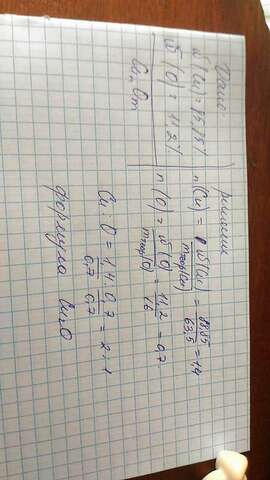 Дано:
ω(Cu) =
ω(O) = 11,2%
CunOm
решение
n(Cu) = ω(Cu) / mатом(Cu) = 88,85 / 63,5 = 1,4
n(O) = ω(O) / mатом(O) = 11,2 / 16 = 0,7
Cu : O = 1,4 / 0,7 : 0,7 / 0,7 = 2 : 1
формула Cu2O